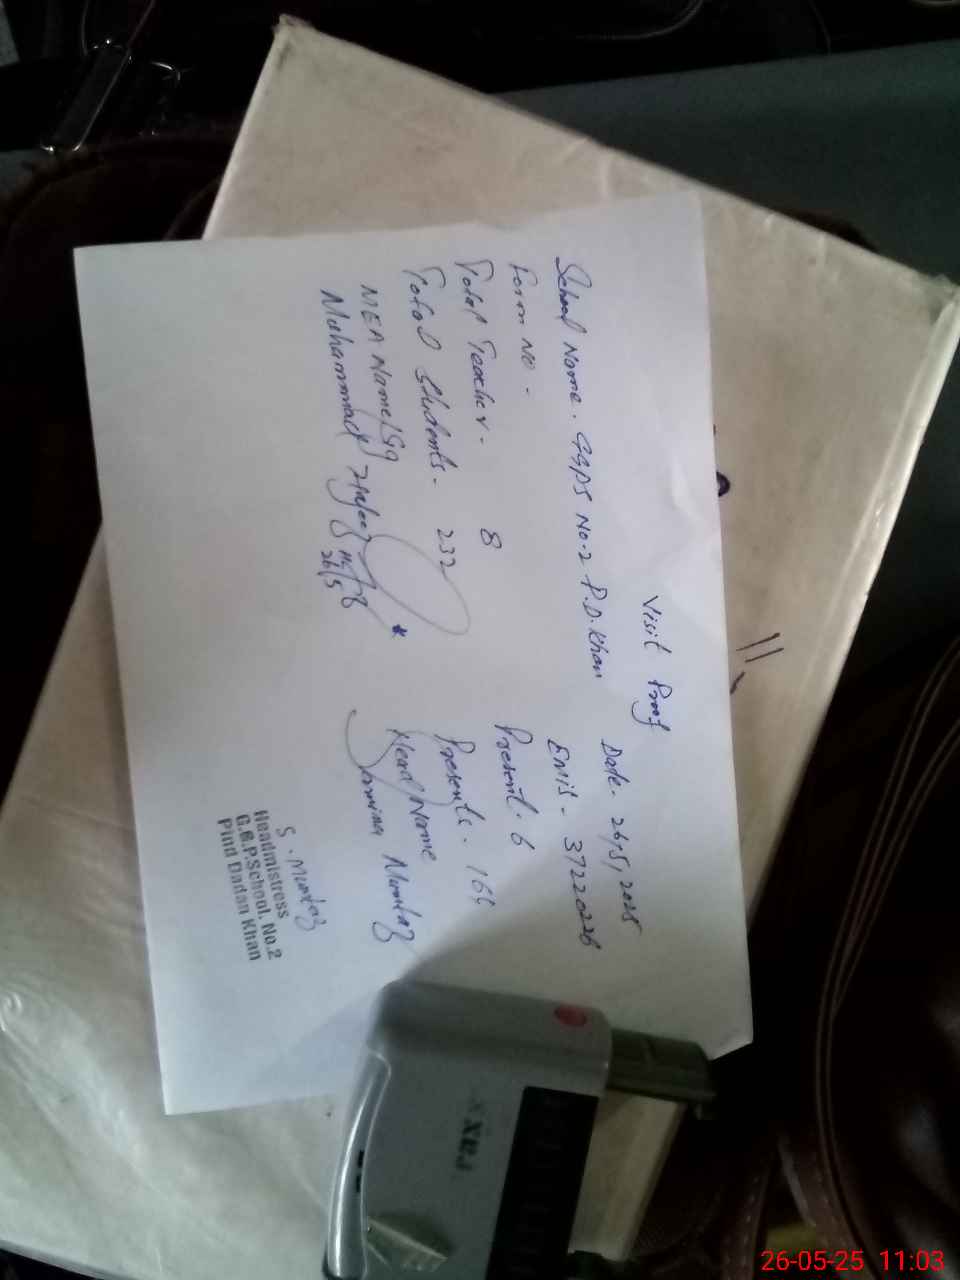 Visit Proof
Date. 26,5,2025
School Name. GGPS No.2 P.D.Khan
Emis - 37220226
Form No -
Present. 6
Total Teacher - 8
Presents. 166
Total Students - 232
Head Name
MEA Name/Sig
Muhammad Hafeez
26/5
Mumtaz
S. Mumtaz
Headmistress
G.G.P.School, No.2
Pind Dadan Khan
26-05-25 11:03